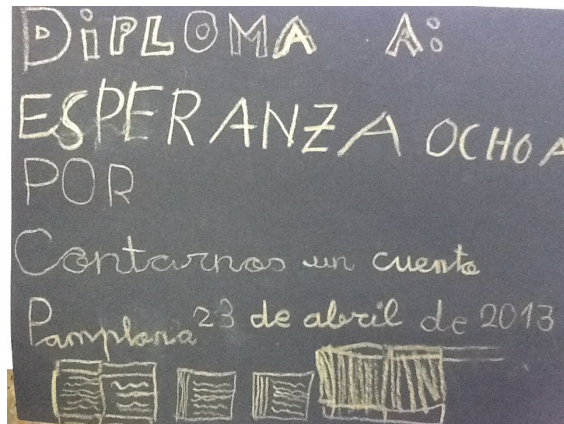 DiPLOMA A:
ESPERANZA OCHOA
POR
Contarnos un cuento
Pamplona 23 de abril de 2013